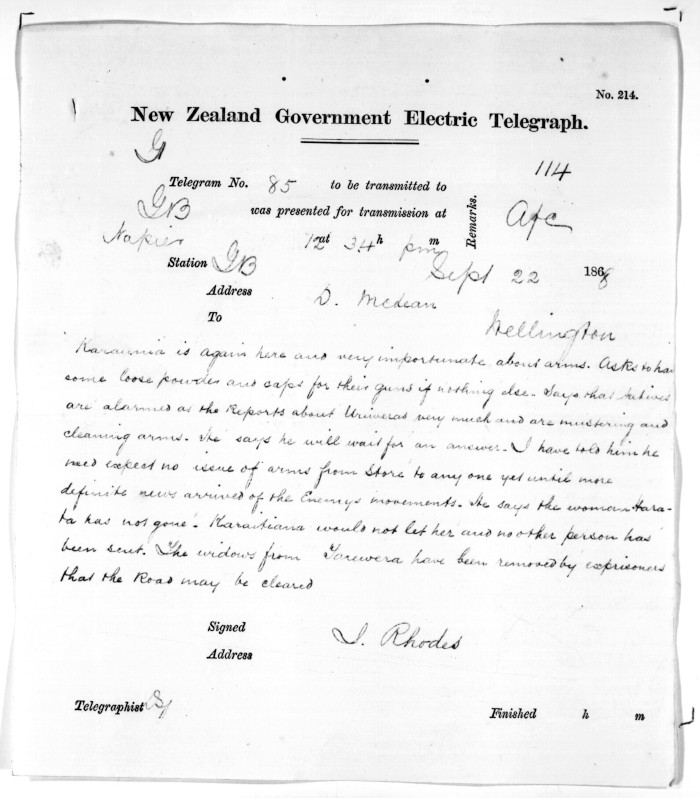 No. 214.
New Zealand Government Electric Telegraph.
G
114
Telegram No. 85 to be transmitted to
GB was presented for transmission at
Remarks.
Napier 12 at 34 h pm m
Station GB
Sept 22 1868
Address D. McLean
To Wellington
Karauria is again here and very importunate about arms. Asks to have
some loose powder and caps for their guns if nothing else. Says that natives
are alarmed as the Reports about Uriweras very much and are mustering and
cleaning arms. He says he will wait for an answer. I have told him he
need expect no issue of arms from Store to any one yet until more
definite news arrived of the Enemys movements. He says the woman Hara-
ta has not gone. Karaitiana would not let her and no other person has
been sent. The widows from Tarewera have been removed by exprisoners
that the Road may be cleared
Signed J. Rhodes
Address
Telegraphist
Finished h m